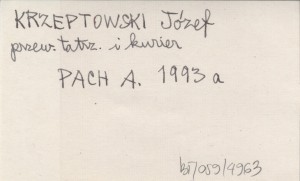 KRZEPTOWSKI Józef
przew. tatrz. i kurier
PACH A. 1993 a
bf/059/4963